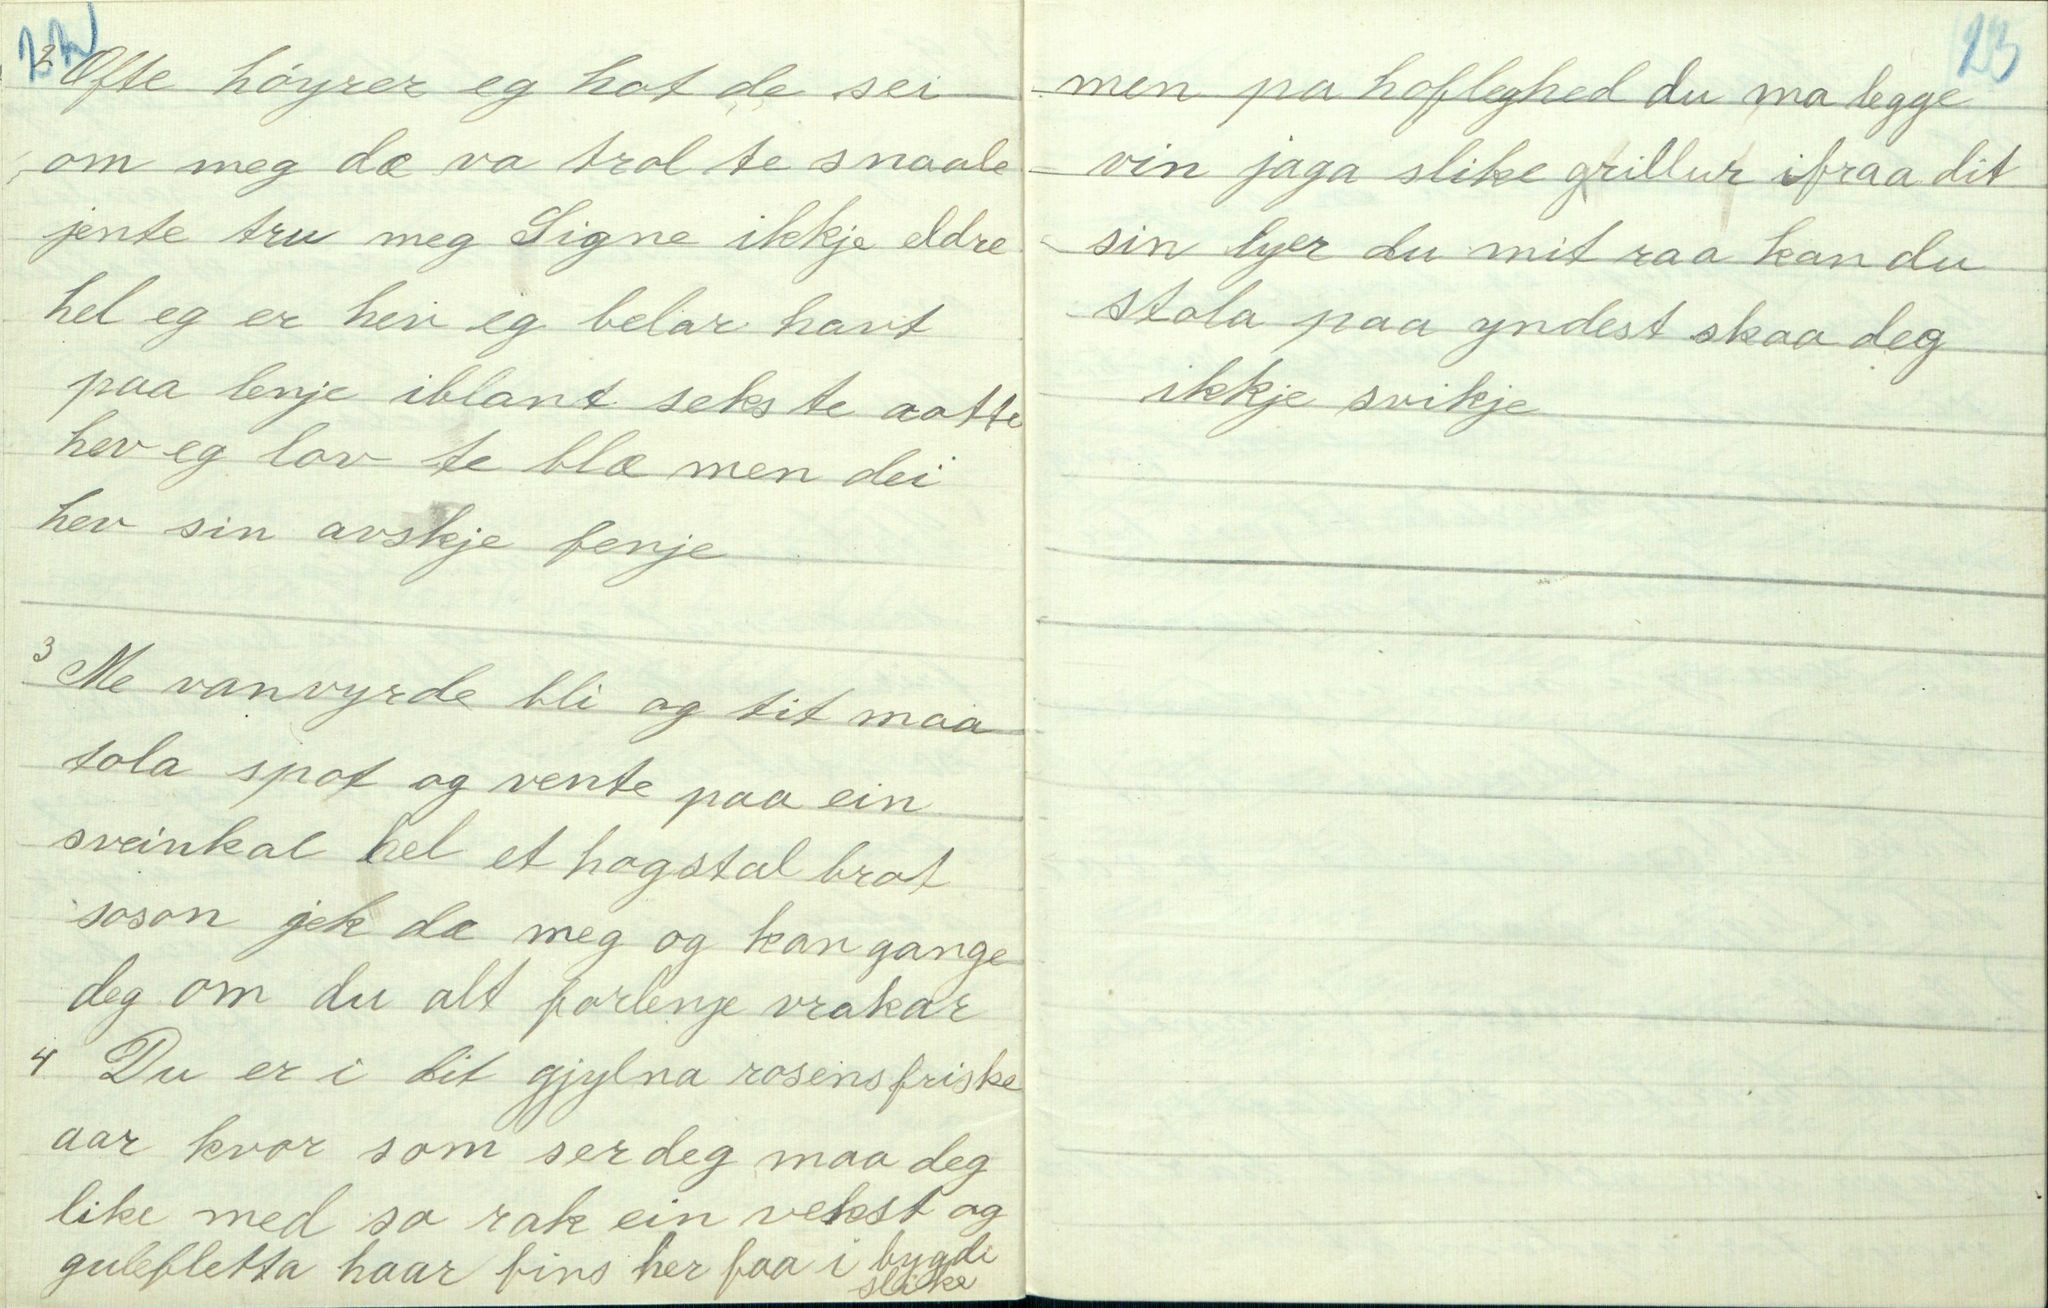 22
2 Ofte höyrer eg hot de sei
om meg dæ va trol te snaale
jente tru meg Signe ikkje eldre
hel eg er hev eg belar havt
paa lenje iblant seks te aatte
hev eg lov te blæ men dei
hev sin avskje fenje
3 Me vanvyrde bli og tit maa
tola spot og vente paa ein
sveinkal hel et hogstal brot
soson jek dæ meg og kan gange
deg om du alt forlenje vrakar
4 Du er i dit gjylna rosensfriske
aar kvor som ser deg maa deg
like med so rak ein vekst og
gulefletta haar fins her faa i bygdi
slike
23
men pa hofleghed du ma legge
vin jaga slike grillur ifraa dit
sin lyer du mit raa kan du
stola paa yndest skaa deg
ikkje svikje